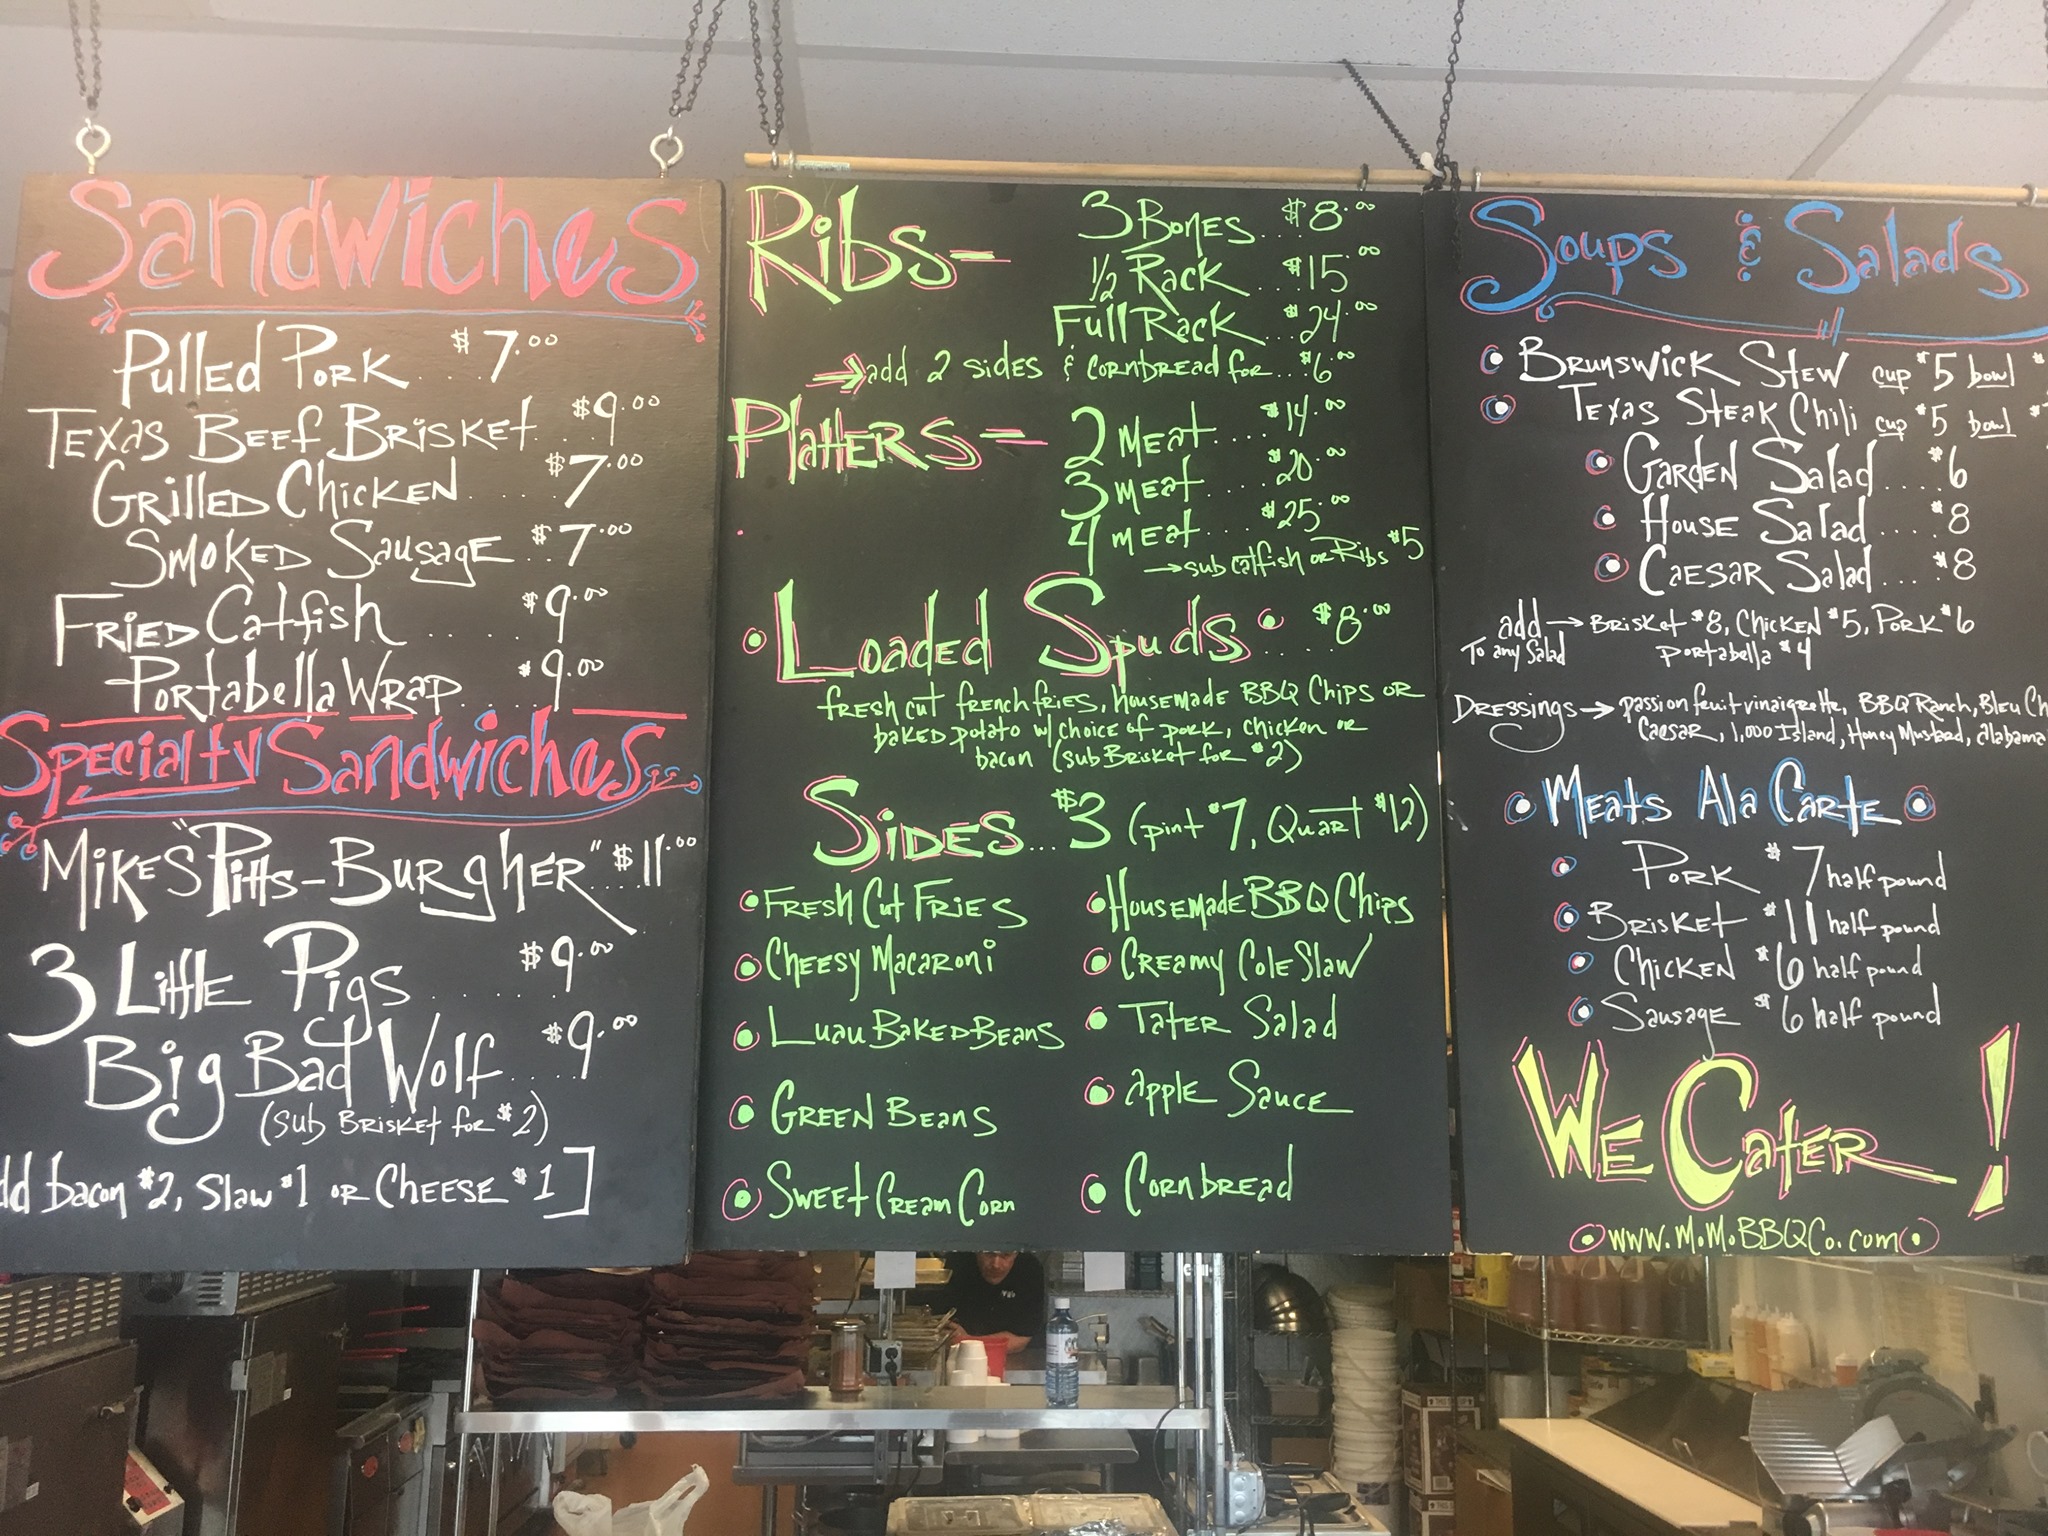 Sandwiches
Pulled Pork .... $7.00
Texas Beef Brisket... $9.00
Grilled Chicken..... $7.00
Smoked Sausage .. $7.00
Fried Catfish .... $9.00
Portabella Wrap.... $9.00
Specialty Sandwiches
Mike's "Pitts-Burgher" $11.00
3 Little Pigs ...... $9.00
Big Bad Wolf .... $9.00
(sub Brisket for $2)
dd bacon $2, Slaw $1 or Cheese $1]
Ribs - 3 Bones... $8.00
1/2 Rack ... $15.00
Full Rack... $24.00
→ add 2 sides & cornbread for... $6.00
Platters - 2 meat.... $14.00
3 meat.... $20.00
4 meat.... $25.00
→ sub catfish or Ribs $5
• Loaded Spuds • .... $8.00
fresh cut french fries, housemade BBQ Chips or
baked potato w/ choice of pork, chicken or
bacon (sub Brisket for $2)
Sides... $3 (pint $7, Quart $12)
• Fresh Cut Fries • Housemade BBQ Chips
• Cheesy Macaroni • Creamy Cole Slaw
• Luau Baked Beans • Tater Salad
• Green Beans • Apple Sauce
• Sweet Cream Corn • Cornbread
Soups & Salads
• Brunswick Stew cup $5 bowl $
• Texas Steak Chili cup $5 bowl $
• Garden Salad .... $6
• House Salad .... $8
• Caesar Salad .... $8
add → Brisket $8, Chicken $5, Pork $6
To any Salad Portabella $4
Dressings → passion fruit vinaigrette, BBQ Ranch, Bleu Ch
Caesar, 1,000 Island, Honey Mustard, alabama
• Meats Ala Carte •
• Pork $7 half pound
• Brisket $11 half pound
• Chicken $6 half pound
• Sausage $6 half pound
We Cater!
• www.MoMoBBQCo.com •